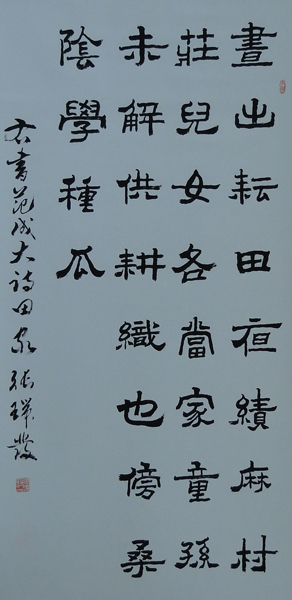 晝出耘田夜績麻村
莊兒女各當家童孫
未解供耕織也傍桑
陰學種瓜
右書范成大詩田家 張瑞發